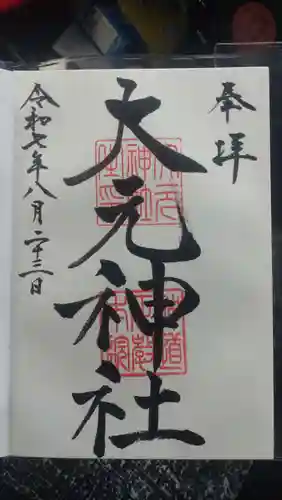 奉拝
大元神社
令和七年八月二十三日